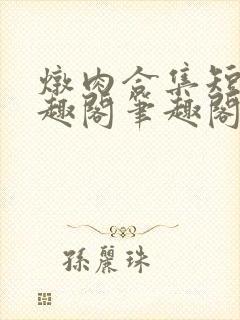 燉肉合集短
趣閣筆趣閣
孫麗珠